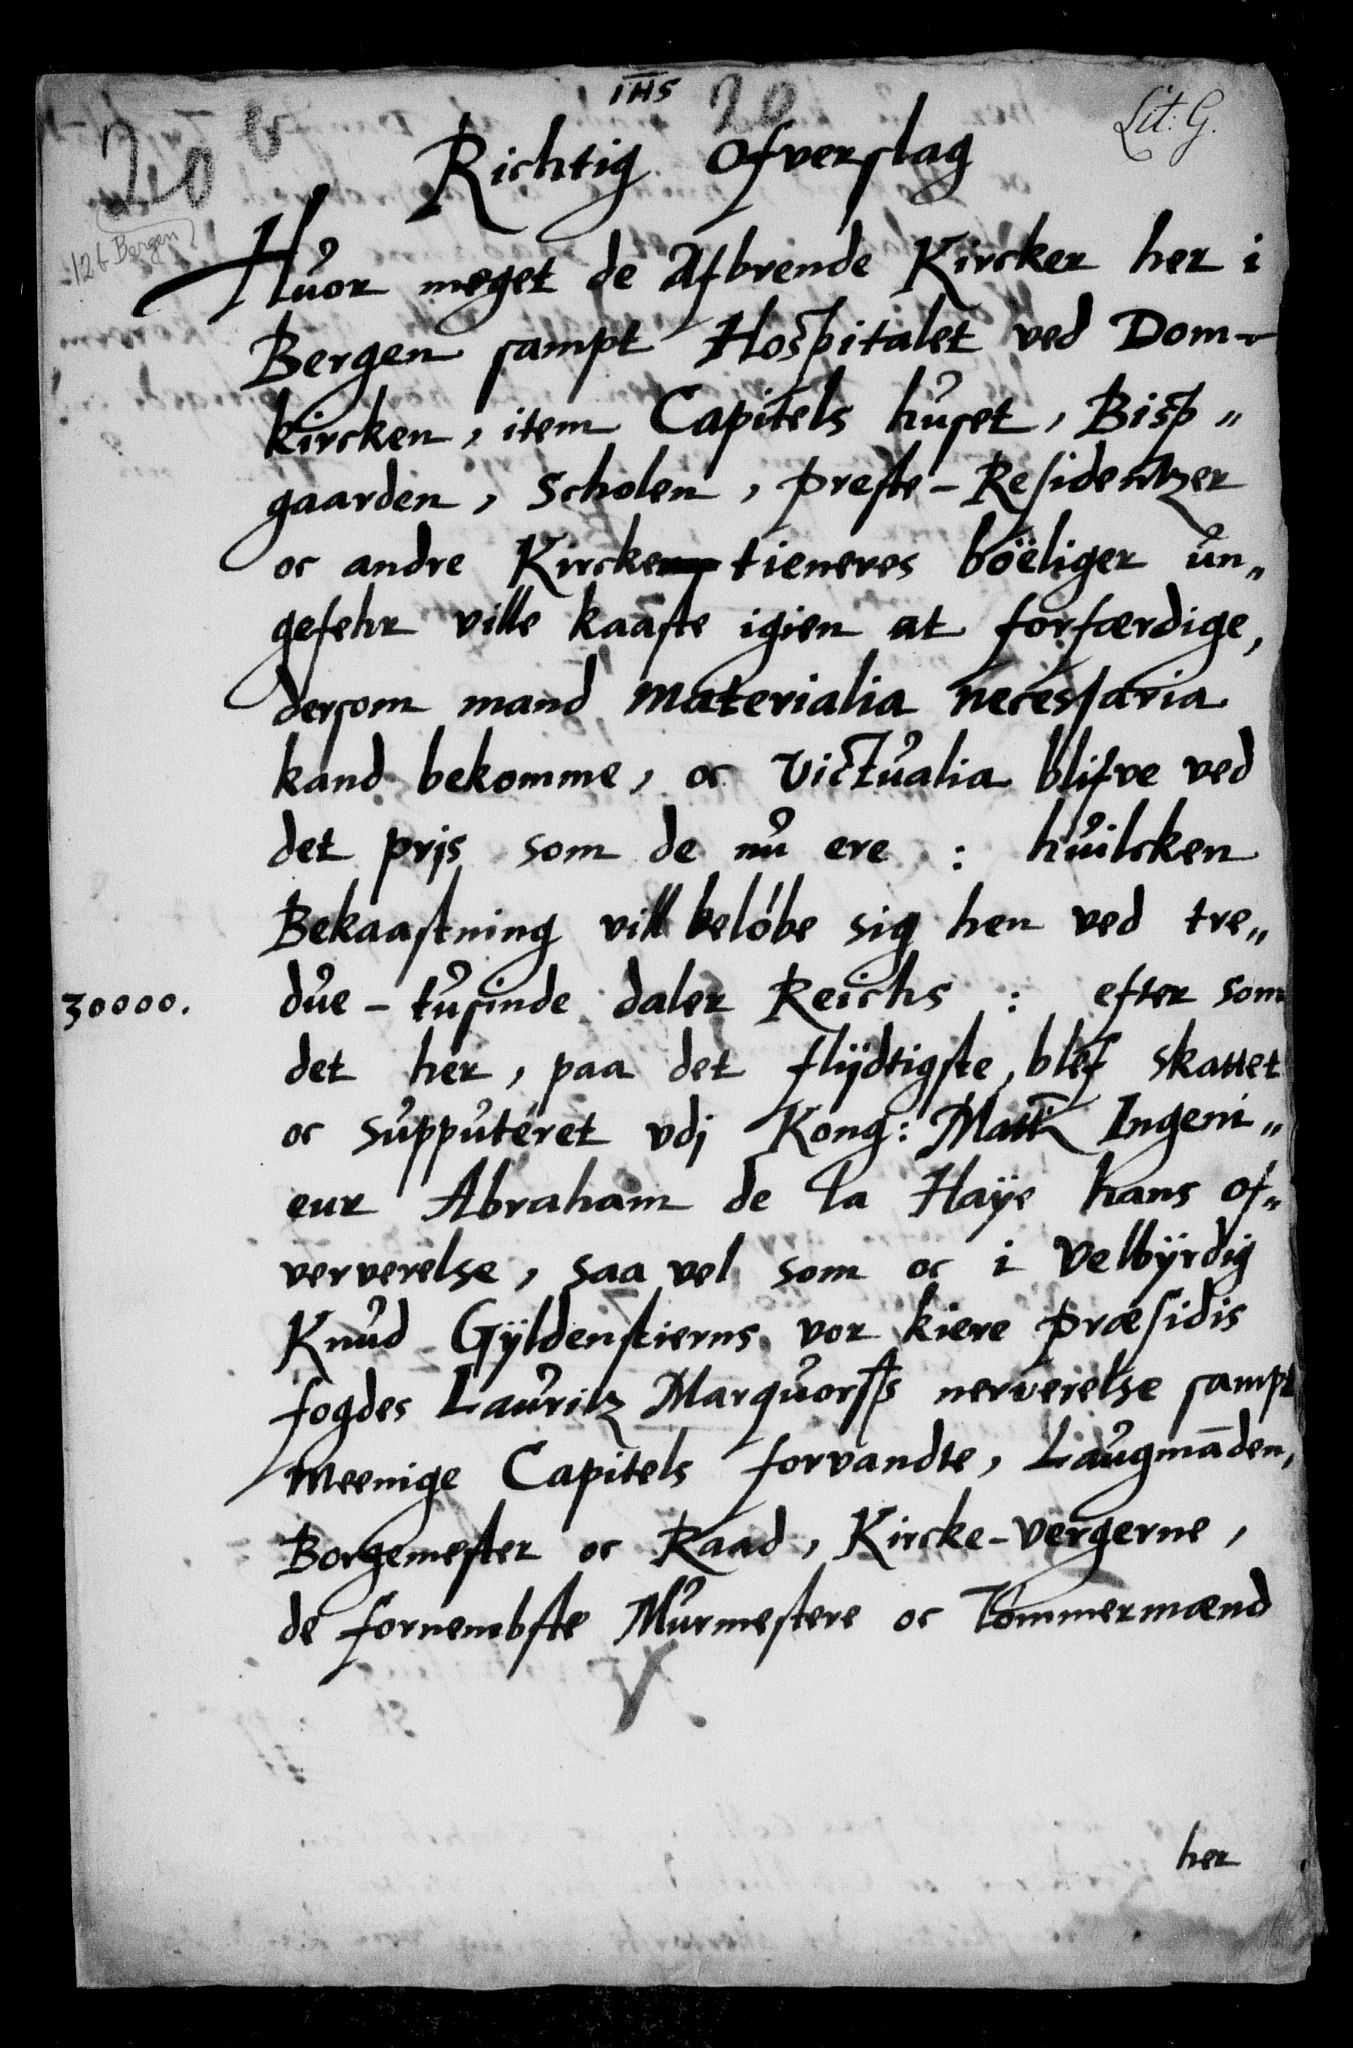 IHS
20
Lit: G.
20 b
Richtig Ofverslag
126 Bergen
Huor meget de Afbrende Kircker her i
Bergen sampt Hospitalet ved Dom-
kircken, item Capitels huset, Bisp„
gaarden, Scholen, Preste-Residentzer
oc andre Kircke tieneres böeliger un„
gefehr ville kaaste igien at forfærdige,
dersom mand Materialia necessaria
kand bekomme, oc Victualia blifve ved
det prjs som de nu ere : huilcken
Bekaastning vill beløbe sig hen ved tre„
30000.
due-tusinde daler Reichs : efter som
det her, paa det flÿdtigste, blef skattet
oc supputéret vdj Kong: Matts Ingeni„
eur Abraham de la Haÿe hans of„
ververelse, saa vel som oc i Velbÿrdig
Knud Gÿldenstierns vor kiere Præsidis
fogdes Lauritz Marquorss nerverelse sampt
Meenige Capitels forvandte, Laugmāden,
Borgemester oc Raad, Kircke-vergerne,
de fornembste Murmestere oc Tömmermænd
her